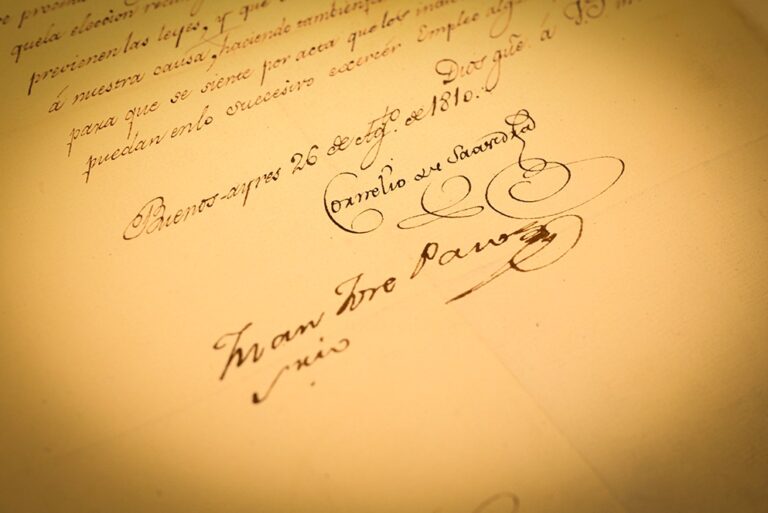 quela eleccion
previenen las leyes, y que
á nuestra causa, haciendo tambien
para que se siente por acta que los
puedan en lo succesivo exercér Empleo
Dios gũe. á
Buenos-ayres 26 de Agto. de 1810.
Cornelio de Saavedra
Juan Jose Passo
Srio